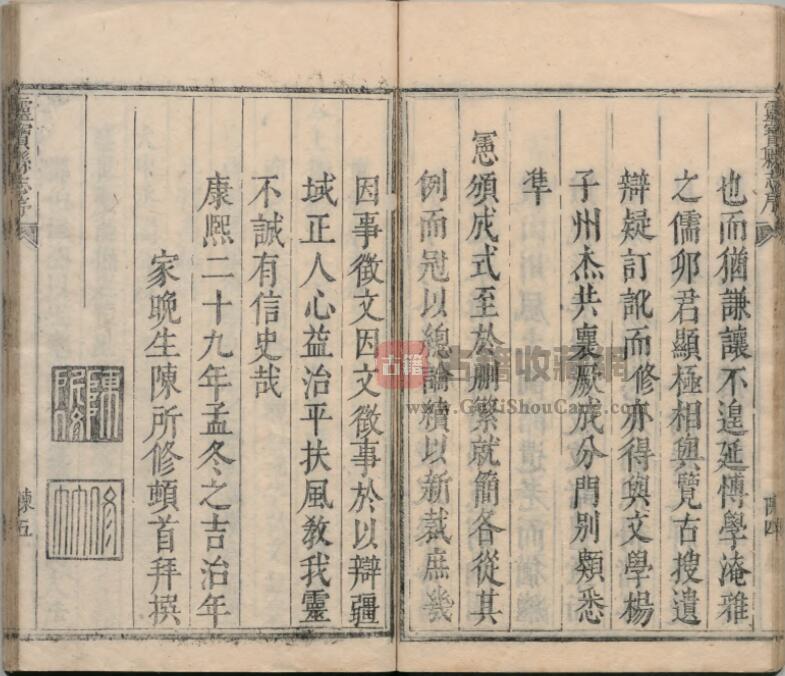 靈寶縣志序
也而猶謙讓不遑延博學淹雅
之儒卯君顯極相與覽古搜遺
辯疑訂訛而修亦得與文學楊
子州杰共襄厥成分門別類悉
準
憲頒成式至於刪繁就簡各從其
例而冠以總論續以新裁庶幾
因事徵文因文徵事於以辯疆
域正人心益治平扶風教我靈
不誠有信史哉
康熙二十九年孟冬之吉治年
家晚生陳所修頓首拜撰
靈寶縣志序
陳五
陳四
古籍
古籍收藏網
www.GuJiShouCang.com